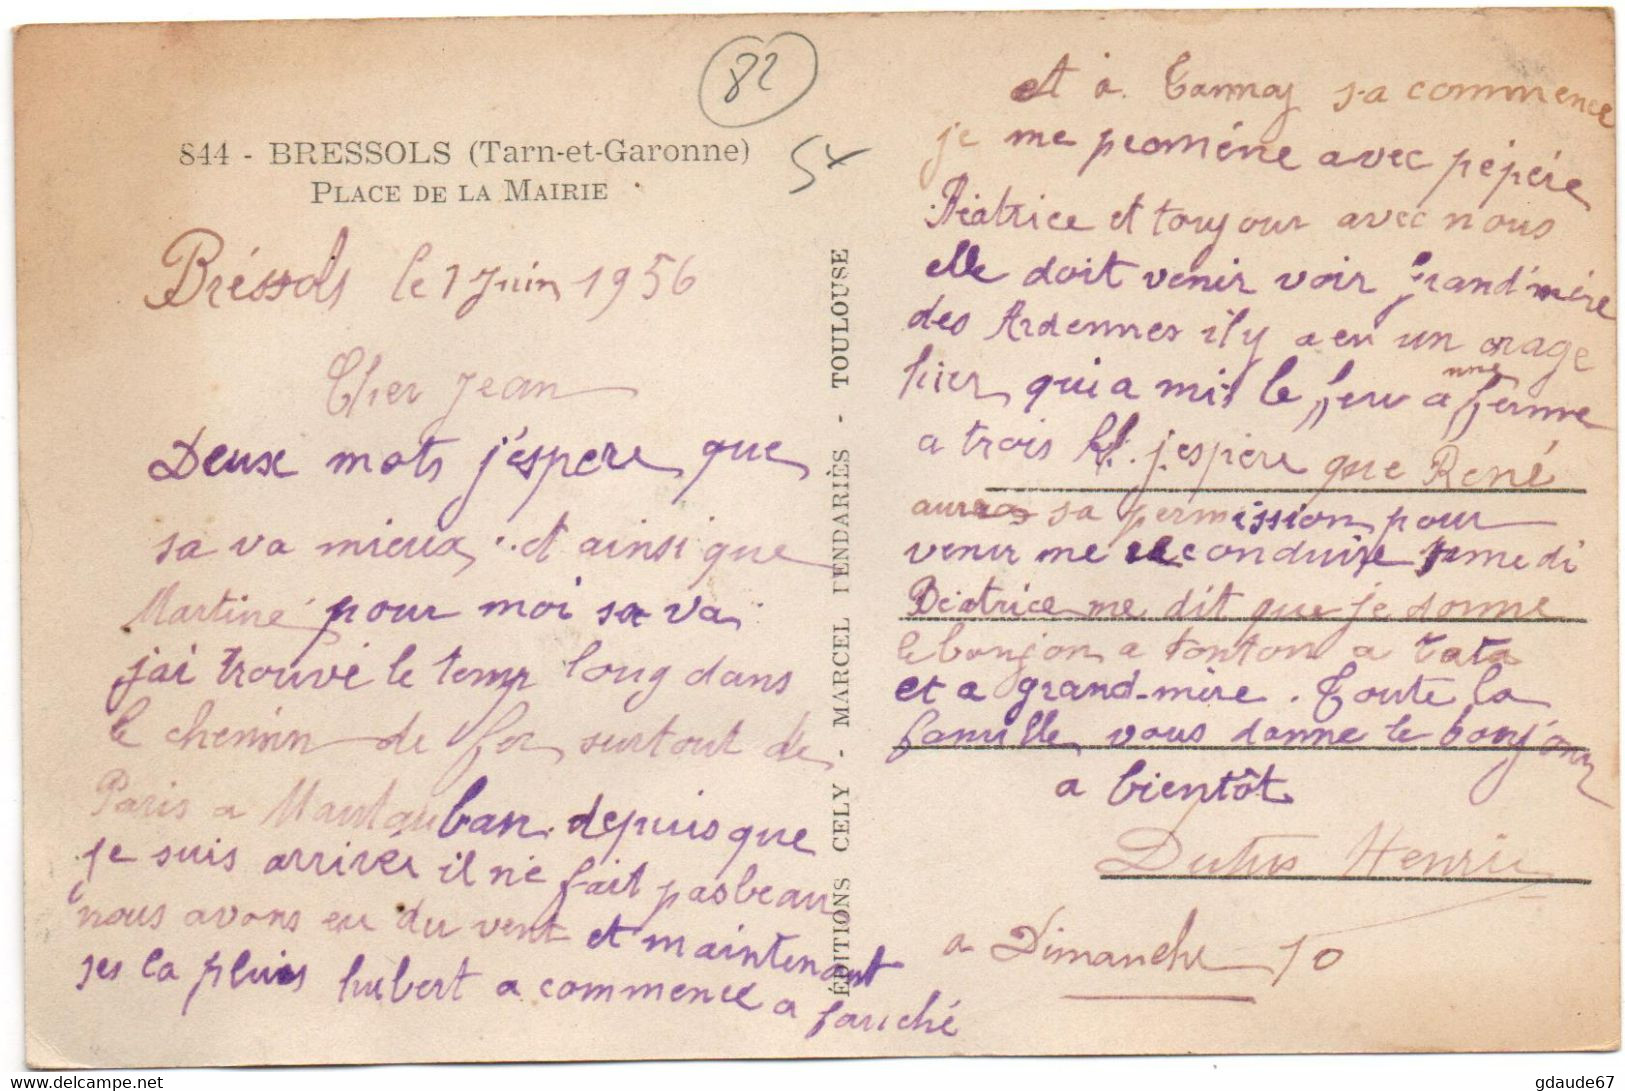 82
5x
844 - BRESSOLS (Tarn-et-Garonne)
PLACE DE LA MAIRIE
Bréssols le 7 Juin 1956
Cher Jean
Deuse mots j'éspere que
sa va mieux .. et ainsi que
Martine pour moi sa va.
j'ai trouvé le temp long dans
le chemin de fer surtout de
Paris a Mautauban. depuis que
je suis arriver il ne fait pas beau
nous avons eu du vent et maintenant
ses la pluis hubert a commence a fauché
ÉDITIONS CELY - MARCEL TENDARIÈS - TOULOUSE
et à Tannay sa commence
je me promène avec pépére
Béatrice et toujour avec nous
elle doit venir voir grand'mère
des Ardennes il y a eu un orage
hier qui a mis le feu a une ferme
a trois K. j'espère que René
aura sa permission pour
venir me reconduire samedi
Béatrice me dit que je donne
le bonjon a tonton a tata
et a grand-mère. Toute la
famille vous donne le bonjour
a bientôt
Henri
a Dimanche 10
gdaude67